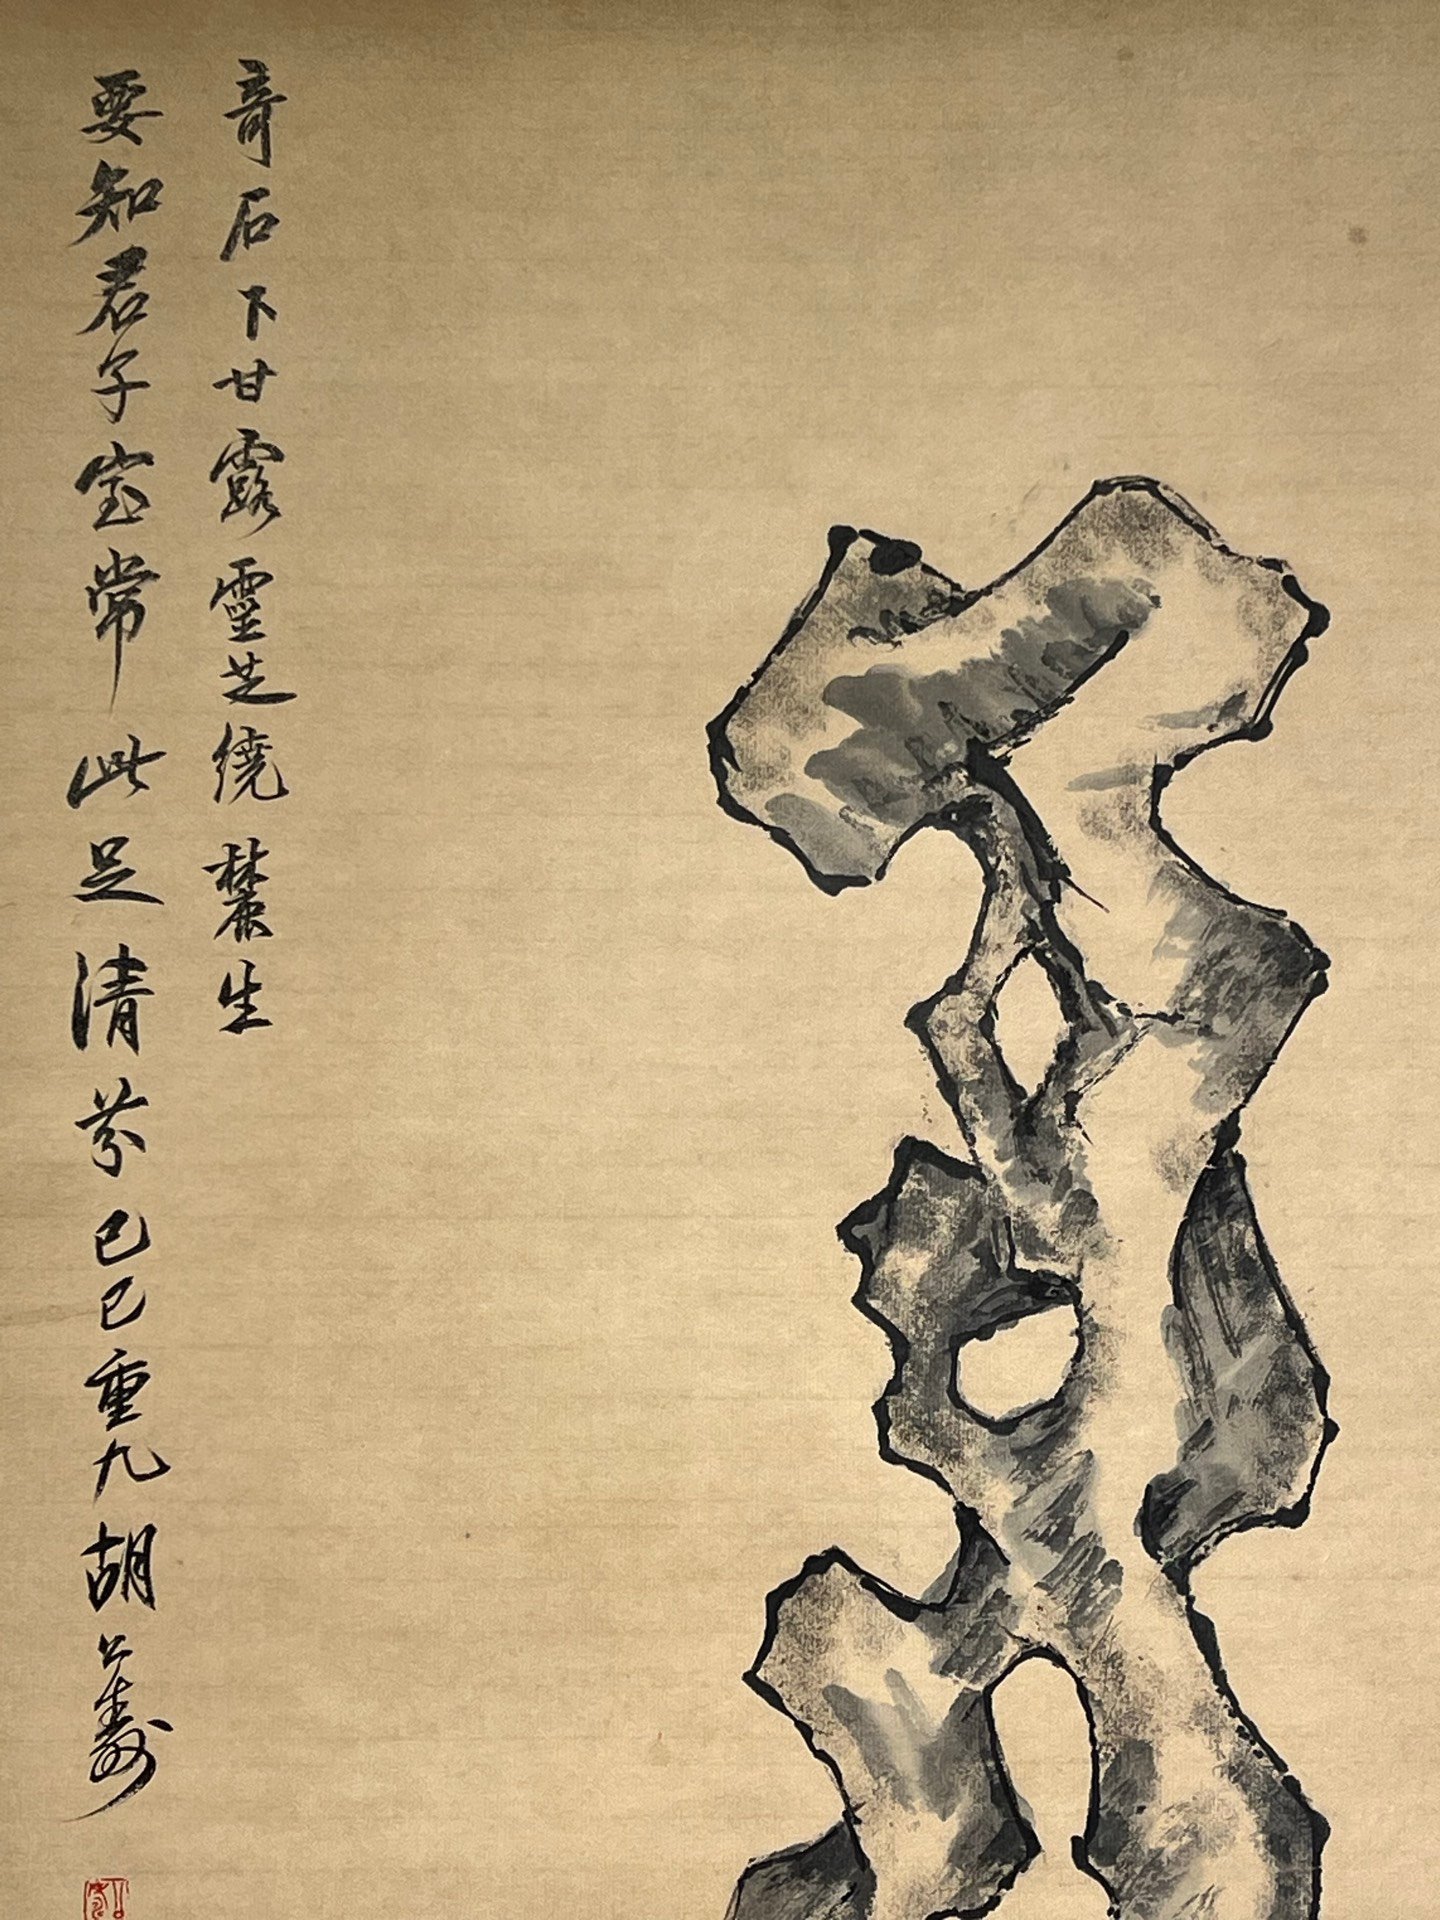 竒石下甘露靈芝繞麓生
要知君子室常此足清芬己巳重九胡公壽